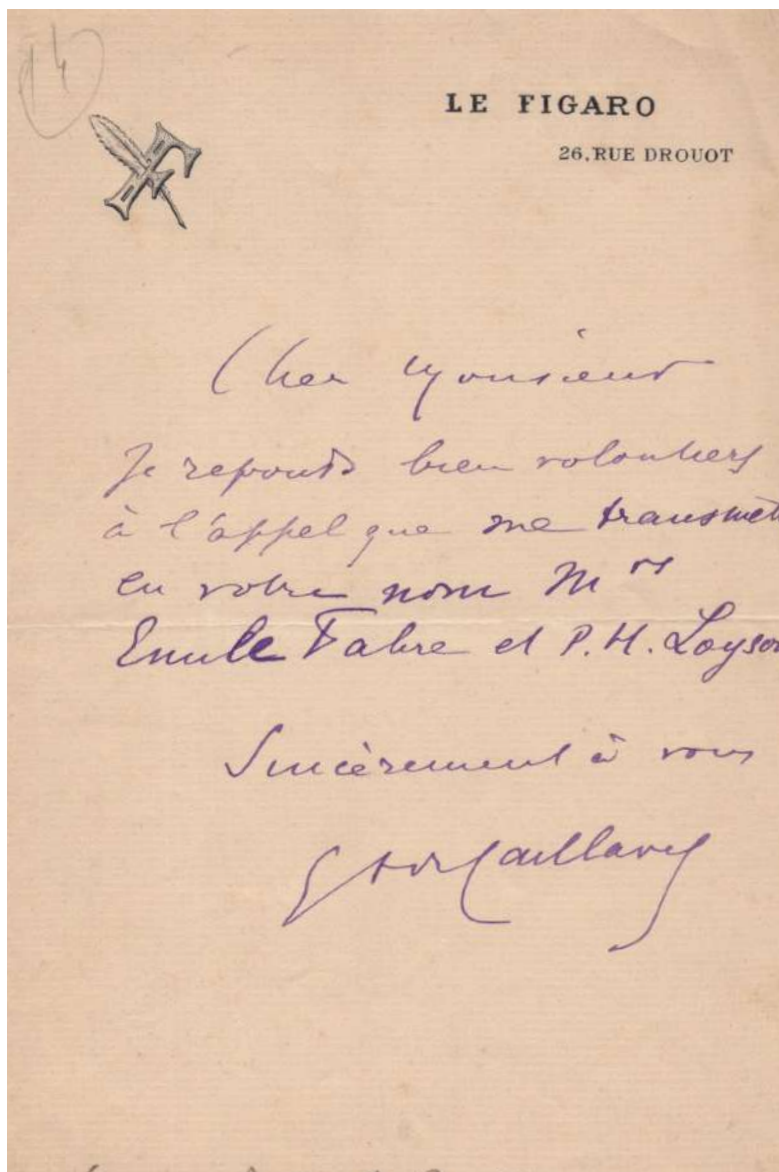 14
LE FIGARO
26, RUE DROUOT
Cher Monsieur
Je reponds bien volontiers
à l'appel que me transmet
en votre nom Mrs
Emile Fabre et P. H. Loyson
Sincèrement à vous
G A de Caillavet